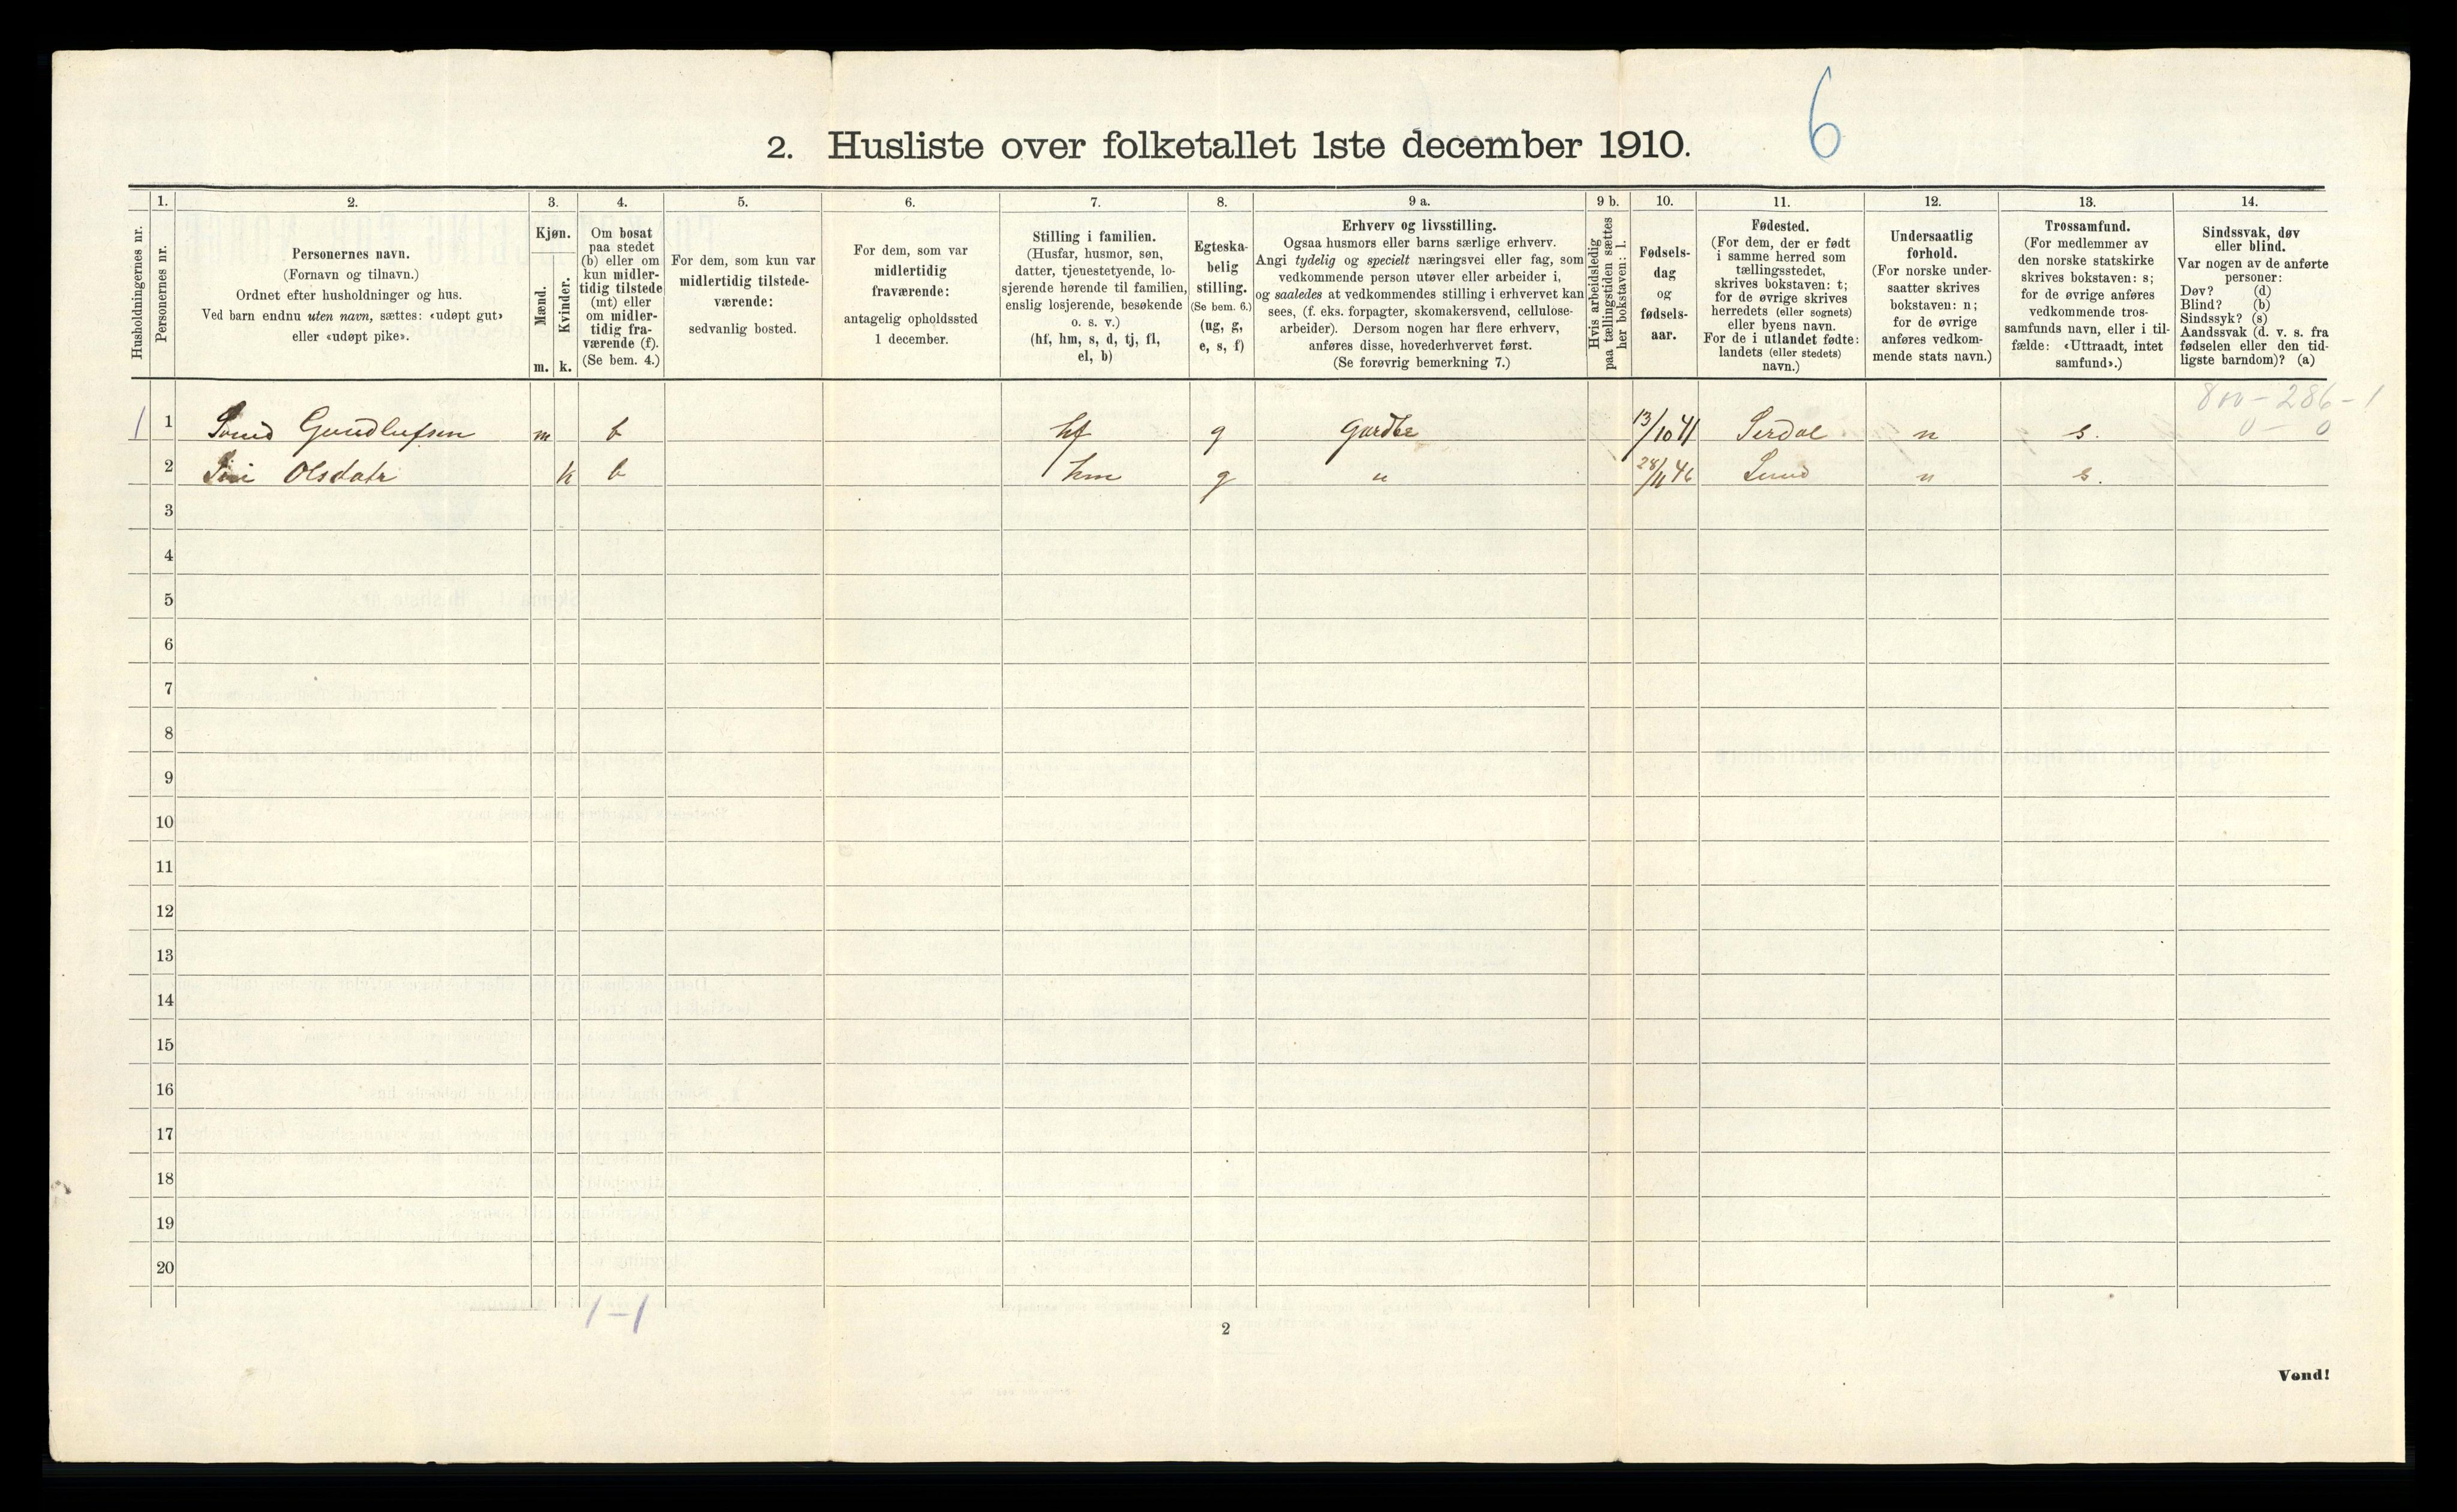 6
2. Husliste over folketallet 1ste december 1910.
Husholdningernes nr.
1.
Personernes nr.
2.
Personernes navn.
(Fornavn og tilnavn.)
Ordnet efter husholdninger og hus.
Ved barn endnu uten navn, sættes: «udøpt gut»
eller «udøpt pike».
3.
Kjøn.
Mænd.
Kvinder.
m. k.
4.
Om bosat
paa stedet
(b) eller om
kun midler-
tidig tilstede
(mt) eller
om midler-
tidig fra-
værende (f).
(Se bem. 4.)
5.
For dem, som kun var
midlertidig tilstede-
værende:
sedvanlig bosted.
6.
For dem, som var
midlertidig
fraværende:
antagelig opholdssted
1 december.
7.
Stilling i familien.
(Husfar, husmor, søn,
datter, tjenestetyende, lo-
sjerende hørende til familien,
enslig losjerende, besøkende
o. s. v.)
(hf, hm, s, d, tj, fl,
el, b)
8.
Egteska-
belig
stilling.
(Se bem. 6.)
(ug, g,
e, s, f)
9 a.
Erhverv og livsstilling.
Ogsaa husmors eller barns særlige erhverv.
Angi tydelig og specielt næringsvei eller fag, som
vedkommende person utøver eller arbeider i,
og saaledes at vedkommendes stilling i erhvervet kan
sees, (f. eks. forpagter, skomakersvend, cellulose-
arbeider). Dersom nogen har flere erhverv,
anføres disse, hovederhvervet først.
(Se forøvrig bemerkning 7.)
9 b.
Hvis arbeidsledig
paa tællingstiden sættes
her bokstaven: l.
10.
Fødsels-
dag
og
fødsels-
aar.
11.
Fødested.
(For dem, der er født
i samme herred som
tællingsstedet,
skrives bokstaven: t;
for de øvrige skrives
herredets (eller sognets)
eller byens navn.
For de i utlandet fødte:
landets (eller stedets)
navn.)
12.
Undersaatlig
forhold.
(For norske under-
saatter skrives
bokstaven: n;
for de øvrige
anføres vedkom-
mende stats navn.)
13.
Trossamfund.
(For medlemmer av
den norske statskirke
skrives bokstaven: s;
for de øvrige anføres
vedkommende tros-
samfunds navn, eller i til-
fælde: «Uttraadt, intet
samfund».)
14.
Sindssvak, døv
eller blind.
Var nogen av de anførte
personer:
Døv? (d)
Blind? (b)
Sindssyk? (s)
Aandssvak (d. v. s. fra
fødselen eller den tid-
ligste barndom)? (a)
800 - 286 - 1
0 - 0
1 1 Gundlufsen m b hf g Gardbr 13/10 41 Serdal n s.
2 Siri Olsdatr k b hm g " 28/11 46 Lund n s.
3
4
5
6
7
8
9
10
11
12
13
14
15
16
17
18
19
20
1-1
2
Vend!